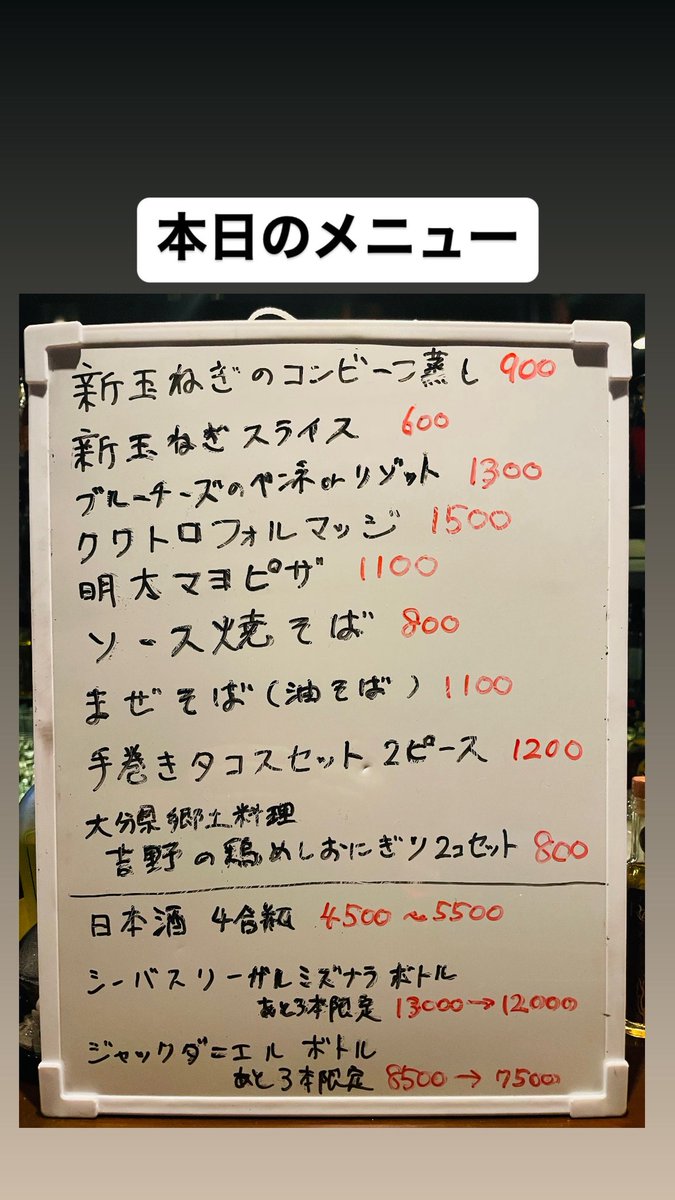 本日のメニュー
新玉ねぎのコンビーフ蒸し 900
新玉ねぎスライス 600
ブルーチーズのペンネorリゾット 1300
クワトロフォルマッジ 1500
明太マヨピザ 1100
ソース焼そば 800
まぜそば(油そば) 1100
手巻きタコスセット 2ピース 1200
大分県郷土料理
吉野の鶏めしおにぎり2コセット 800
日本酒 4合瓶 4500〜5500
シーバスリーガルミズナラ ボトル
あと3本限定 13000→12000
ジャックダニエル ボトル
あと3本限定 8500→7500